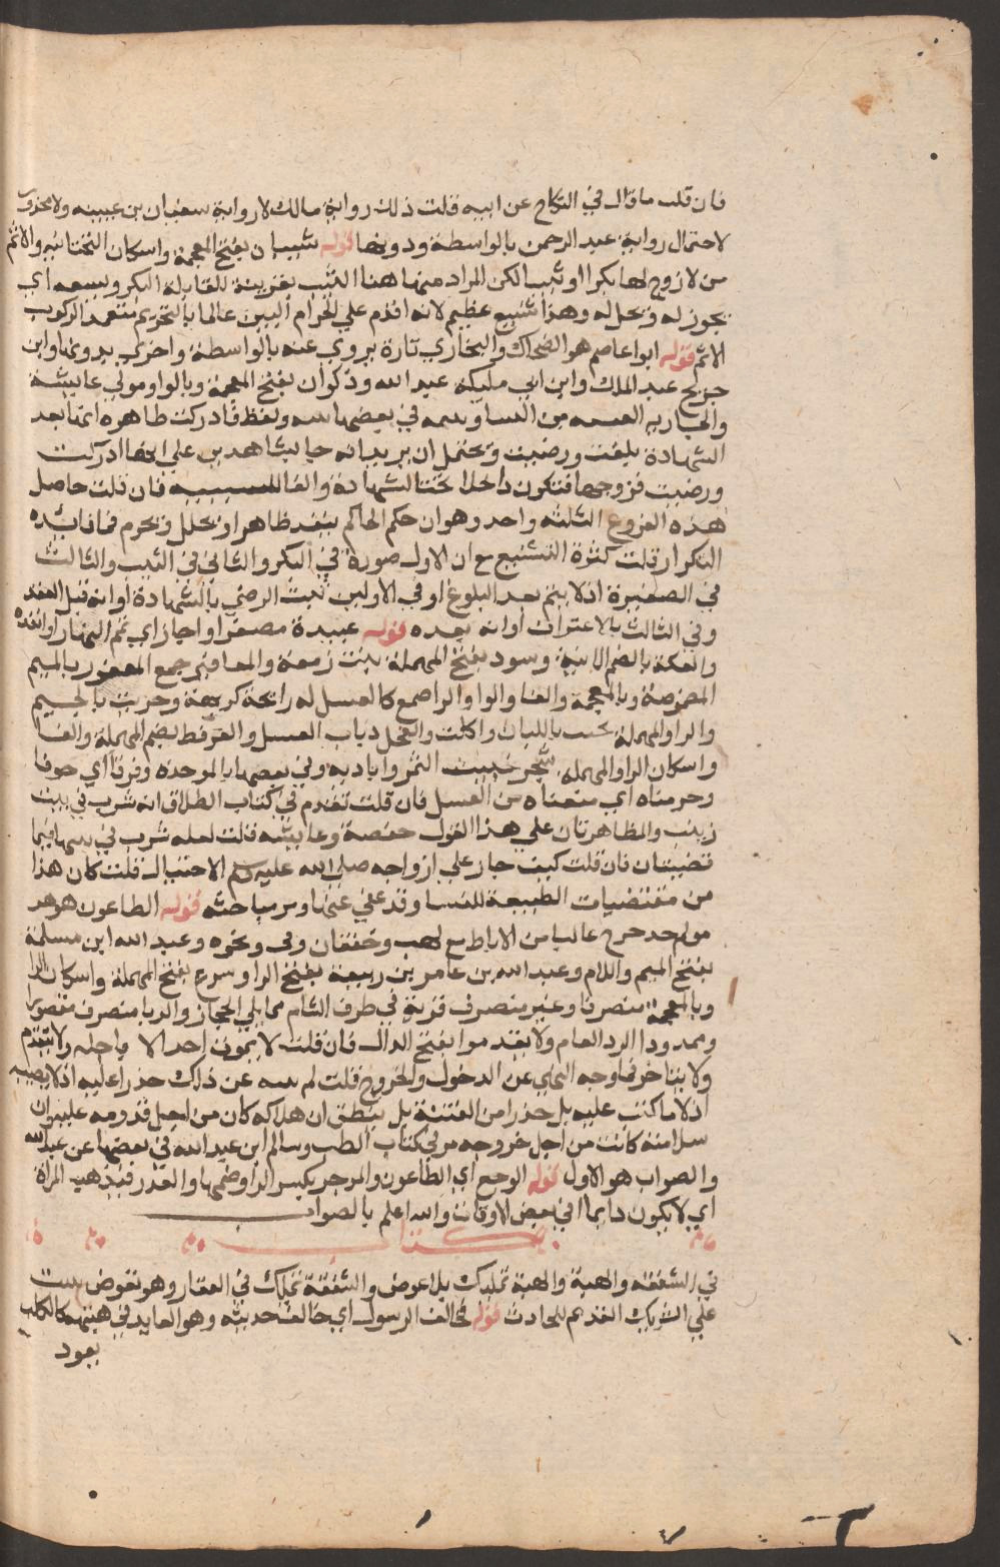 فان قلت ما قال في النكاح عن ابيه قلت ذلك رواية مالك لا رواية سفيان بن عيينه ولا محذور
لاحتمال رواية عبد الرحمن بالواسطة ودونها قوله شيبان بفتح المعجمة واسكان التحتانيه والائم
من لا زوج لها بكرا او ثيبا لكن المراد منها هنا الثيب بقرينة المقابلة البكر ويسعه اي
يجوز له ويحل له وهذا تشنيع عظيم لانه اقدم علي الحرام البين عالما بالتحريم متعمد الركوب
الاثم قوله ابو عاصم هو الضحاك والبخاري تارة يروي عنه بالواسطة واخري بدونها وابن
جريج عبد الملك وابن ابي مليكه عبد الله وذكوان بفتح المعجمة وبالواو مولي عايشة
والجاريه من النسا وفي بعضها ولفظ فادركت ظاهره انها بعد
الشهادة بلغت ورضيت ويحتمل ان يريد انه جا بشاهدين علي انها ادركت
ورضيت فزوجها فتكون داخلا تحت الشهادة والفا للسببيه فان قلت حاصل
هذه الفروع الثلثه واحد وهو ان حكم الحاكم ينفد ظاهرا ويحلل ويحرم فما فايده
التكرار قلت كثرة التشنيع مع ان الاول صورة في البكر والثاني في الثيب والثالث
في الصغيرة اذ لا يتم بعد البلوغ او في الاولين ثبت الرضي بالشهادة او انه قبل العقد
وفي الثالث بالاعتراف او انه بعده قوله عبيدة مصغرا واجاز اي تمم النهار او انفده
والعكة بالضم الانية وسوده بفتح المهملة بنت زمعة والمغافير جمع المغفور بالميم
المضمومة وبالمعجمة والفا والواو والرا صمع كالعسل له رائحة كريهة وجرست بالجيم
والرا والمهملة باللسان واكلت والنحل ذباب العسل والعرفط بضم المهملة والفا
واسكان الرا والمهملة شجر خبيث الثمر وابادئه وفي بعضها بالموحدة وفرقا اي خوفا
وحرمناه اي منعناه من العسل فان قلت تقدم في كتاب الطلاق انه شرب في بيت
زينب والمظاهرتان علي هذا القول حفصة وعايشه قلت لعله شرب في بيتهما فهما
قضيتان فان قلت كيف جاز علي ازواجه صلي الله عليه وسلم الاحتيال قلت كان هذا
من مقتضيات الطبيعة للنسا وقد عفي عنها ومر مباحثه قوله الطاعون هو
مولم جدا يخرج غالبا من الاباط مع لهب وخفقان وقي ونحوه وعبد الله ابن مسلمة
بفتح الميم واللام وعبد الله بن عامر بن ربيعة بفتح الرا وسرع بفتح المهملة واسكان الرا
وبالمعجمة منصرفا وغير منصرف قرية في طرف الشام مما يلي الحجاز والوبا منصرف مقصورا
وممدودا الرد العام ولا يقدموا بفتح الدال فان قلت لا يموت احد الا باجله ولا يتقدم
ولا يتاخر فما وجه النهي عن الدخول والخروج قلت لم ينه عن ذلك حذرا عليه اذ لا يصيبه
اذ لا ما كتب عليه بل حذرا من الفتنة بل يظن ان هلاكه كان من اجل قدومه عليه وان
سلامته كانت من اجل خروجه مر في كتاب الطب وسالم ابن عبد الله في بعضها عن عبد الله
والصواب هو الاول قوله الوجع اي الطاعون والرجز بكسر الرا وضمها والعذر فيذهب المراة
اي لا يكون دايما في بعض الاوقات والله اعلم بالصواب
كتاب
في الشفعه والهبة والهبة تمليك بلا عوض والشفعة تملك في العقار وهو بعوض يثبت
علي الشريك القديم للحادث قوله فخالف الرسول اي خالف حديثه وهو العايد في هبته كالكلب
يعود